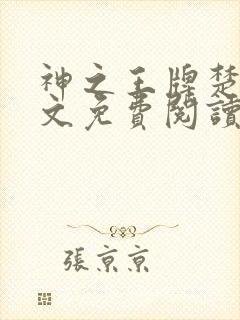 神之王牌楚
文免費閱讀
張京京